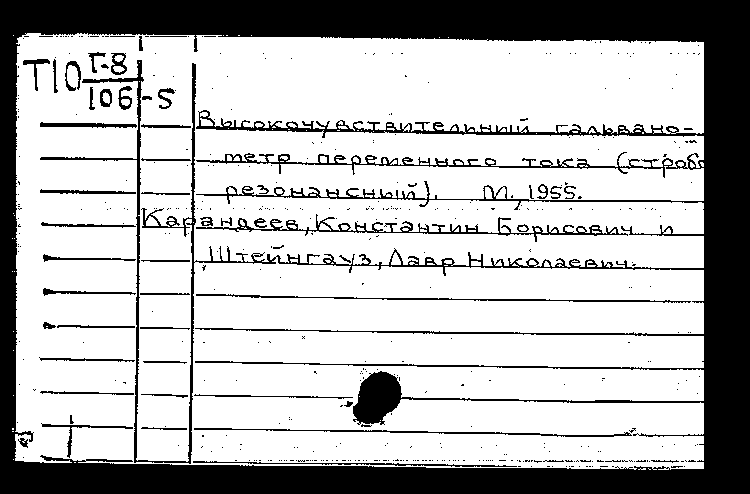 Т10 Г-8
106-5
Высокочувствительный гальвано-
метр переменного тока (стробо
резонансный). М., 1955.
Карандеев, Константин Борисович и
Штейнгауз, Лавр Николаевич.